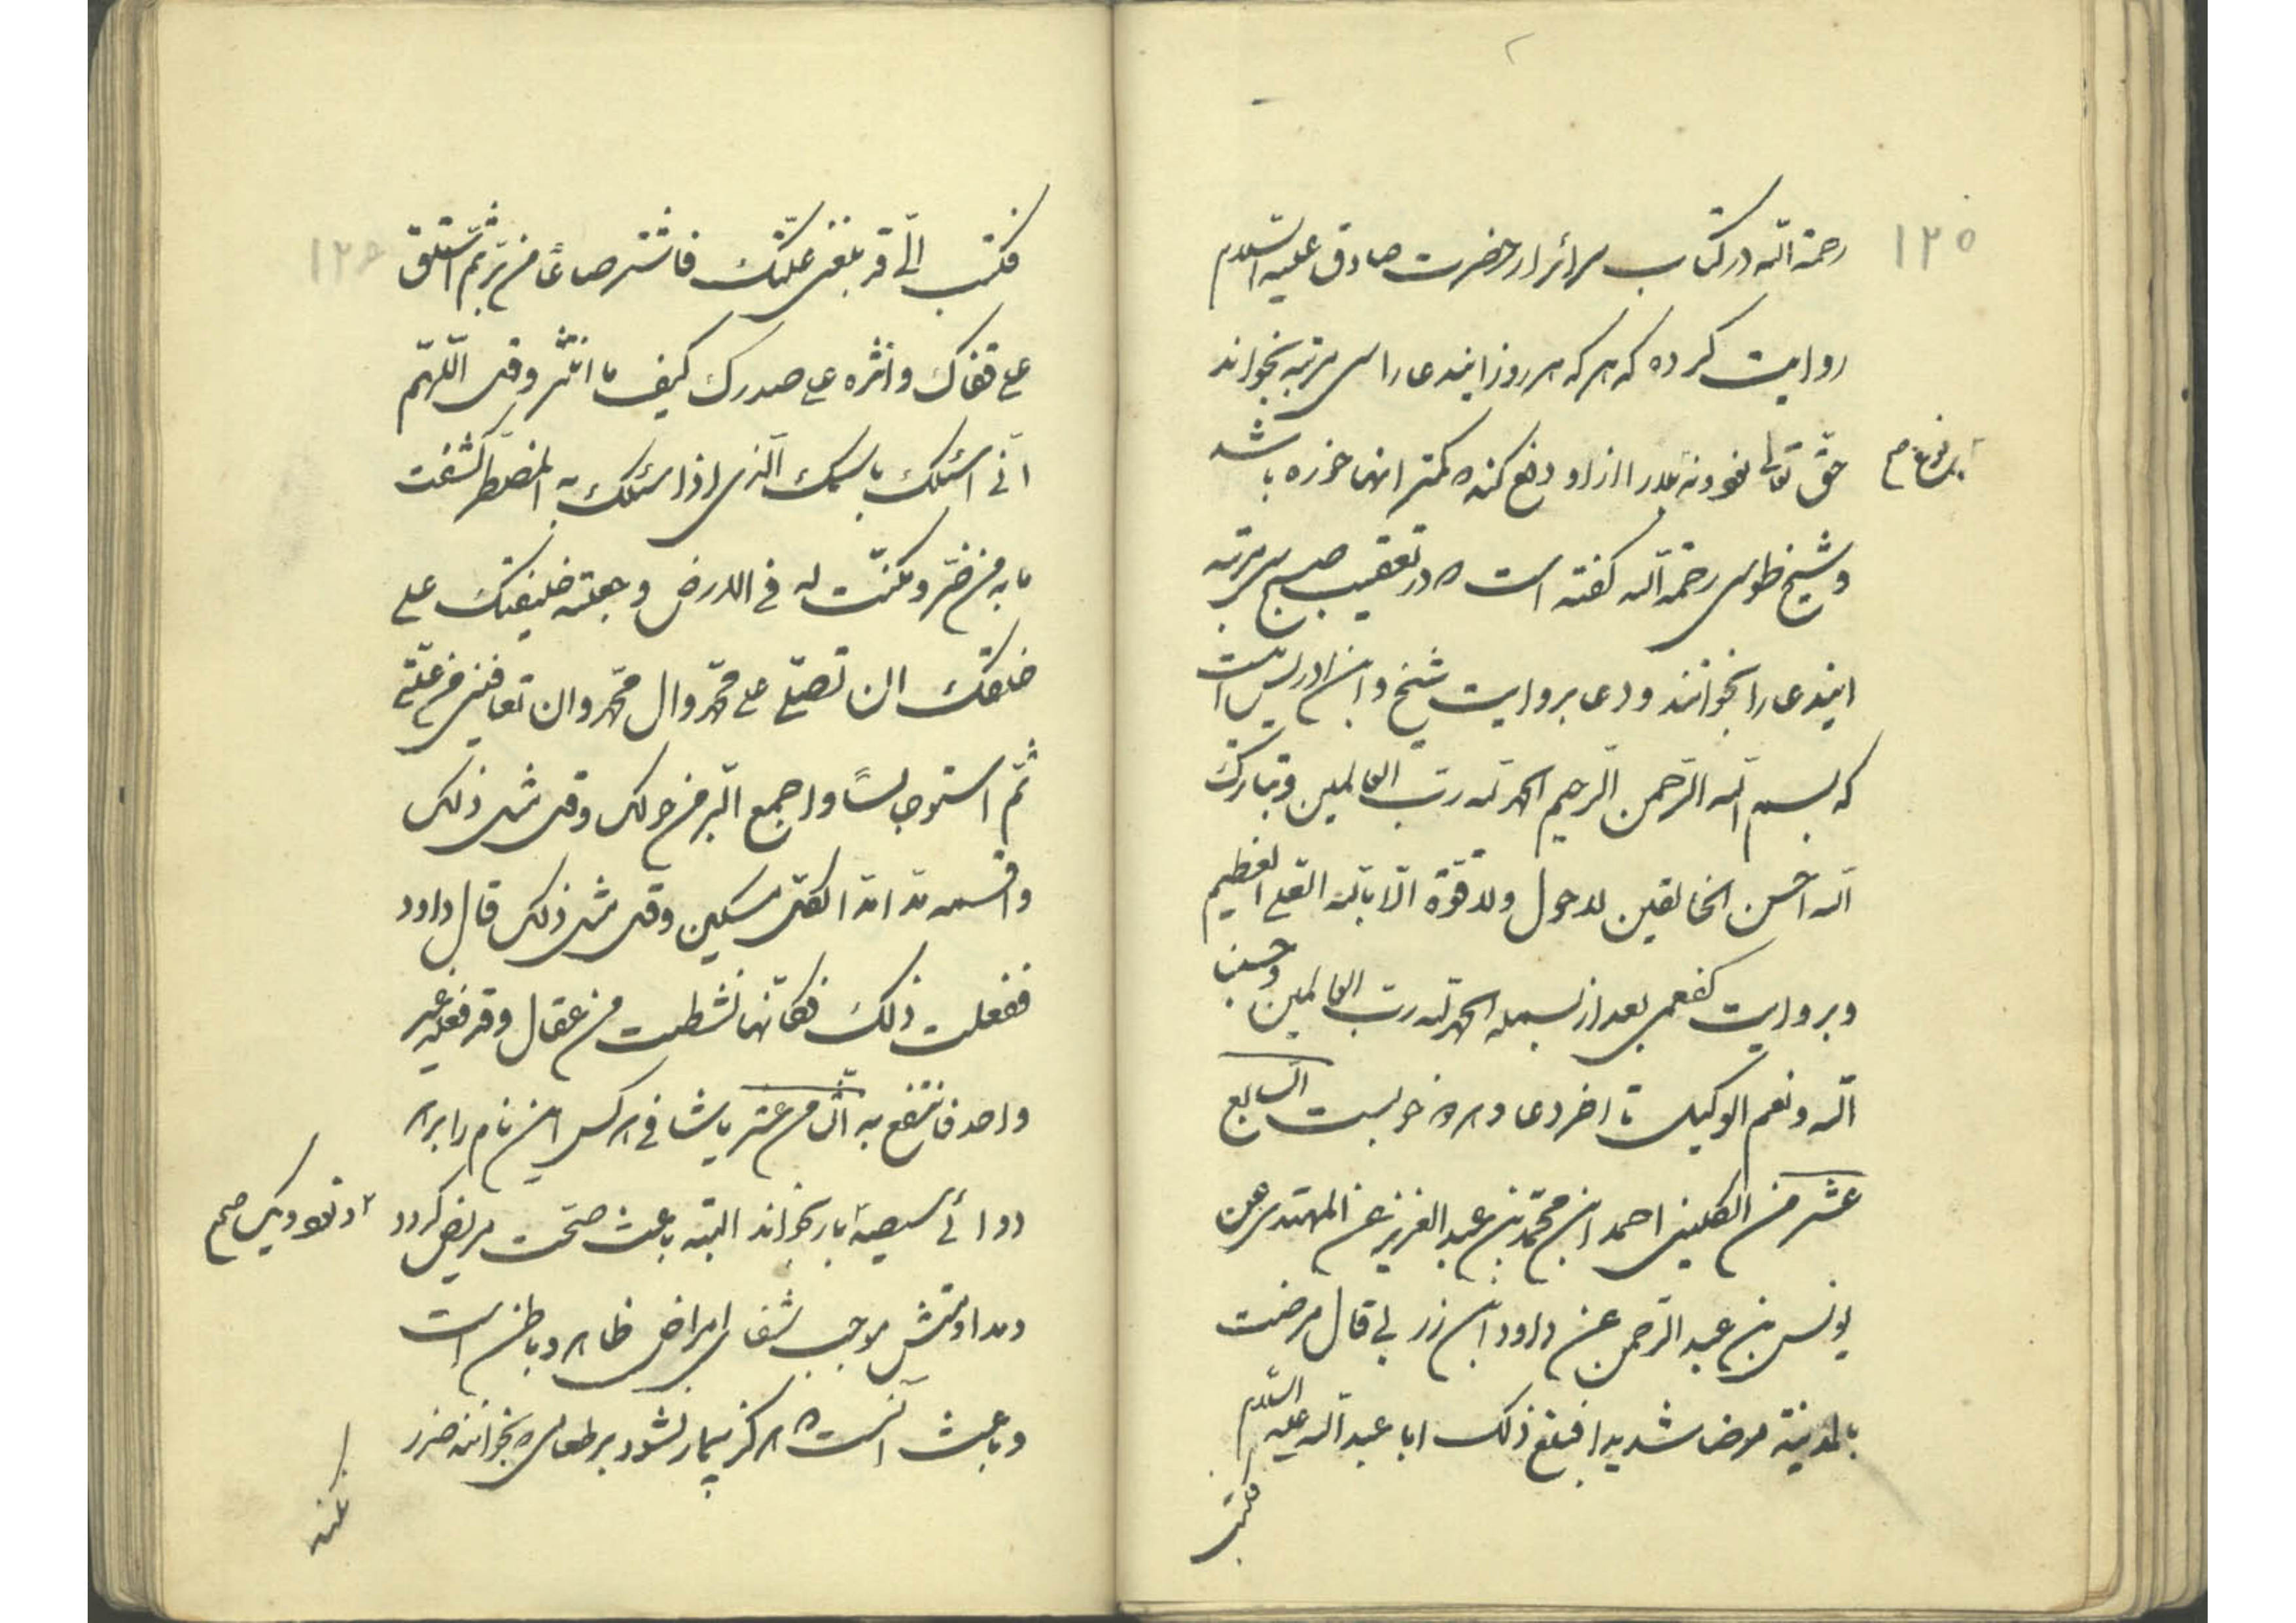 ۱۲۵
رحمة الله در کتاب سرائر از حضرت صادق علیه السلام
روایت کرده که هر که هر روز ایندعا را سی مرتبه بخواند
حق تعالی نود و نه بلا را از او دفع کند ه کمتر انها خوره باشد
نوع صح
و شیخ طوسی رحمة الله کفته است ه در تعقیب صبح سی مرتبه
ایندعا را بخوانند و دعا بروایت شیخ و ابن ادریس اینست
که بسم الله الرحمن الرحیم الحمد لله رب العالمین و تبارک
الله احسن الخالقین لا حول ولا قوة الّا بالله العلی العظیم
و بروایت کفعمی بعد از بسمله الحمد لله رب العالمین و حسبنا
الله و نعم الوکیل تا اخر دعا و هر ه خوبست السابع
عشر من الکلینی احمد ابن محمد بن عبد العزیز عن المهتدی عن
یونس بن عبد الرحمن عن داود ابن زربی قال مرضت
بالمدینة مرضا شدیدا فبلغ ذلک ابا عبد الله علیه السلام
فکتب
۱۲۶
فکتب الیّ قد بلغنی علّتک فاشتر صاعاً من برّ ثم استلق
علی قفاک و انثره علی صدرک کیف ما انتثر و قل اللّهمّ
انّی اسئلک باسمک الّذی اذا سئلک به المضطرّ کشفت
ما به من ضرّ و مکّنت له فی الارض و جعلته خلیفتک علی
خلقک ان تصلّی علی محمّد وال محمّد وان تعافینی من علّتی
ثمّ استو جالساً و اجمع البرّ من حولک و قل مثل ذلک
واقسمه مدّا مدّا لکلّ مسکین و قل مثل ذلک قال داود
ففعلت ذلک فکانّما نشطت من عقال و قد فعله غیر
واحد فانتفع به الثامن عشر یا شافی هر کس این نام را بر هر
دوائی سیصد بار بخواند البته باعث صحّت مریض کردد
۲ و نود و یک صح
و مداومتش موجب شفای امراض ظاهر و باطن است
و باعث آنست ه هرکز بیمار نشود بر طعامی ه بخوانند ضرر
نکند